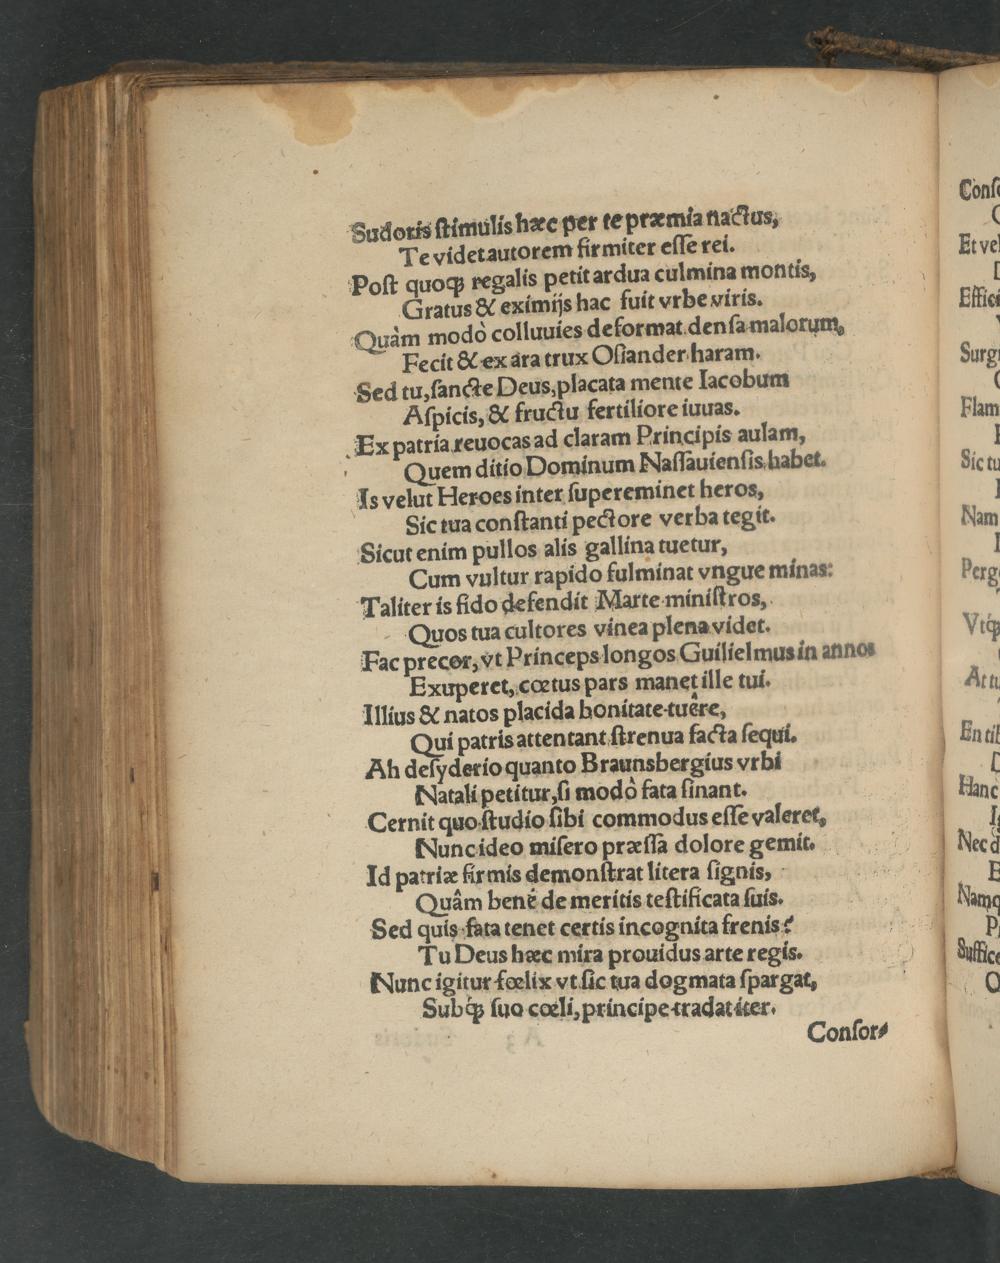 Sudoris ſtimulis hæc per te præmia nactus,
Te videt autorem firmiter eſſe rei.
Poſt quoqꝫ regalis petit ardua culmina montis,
Gratus & eximijs hac fuit vrbe viris.
Quàm modò colluuies deformat denſa malorum,
Fecit & ex ara trux Oſiander haram.
Sed tu, ſancte Deus, placata mente Iacobum
Aſpicis, & fructu fertiliore iuuas.
Ex patria reuocas ad claram Principis aulam,
Quem ditio Dominum Naſſauienſis habet.
Is velut Heroes inter ſupereminet heros,
Sic tua conſtanti pectore verba tegit.
Sicut enim pullos alis gallina tuetur,
Cum vultur rapido fulminat vngue minas:
Taliter is fido defendit Marte miniſtros,
Quos tua cultores vinea plena videt.
Fac precor, vt Princeps longos Guilielmus in annos
Exuperet, cœtus pars manet ille tui.
Illius & natos placida bonitate tuêre,
Qui patris attentant ſtrenua facta ſequi.
Ah deſyderio quanto Braunsbergius vrbi
Natali petitur, ſi modò fata ſinant.
Cernit quo ſtudio ſibi commodus eſſe valeret,
Nunc ideo miſero præſſa dolore gemit.
Id patriæ firmis demonſtrat litera ſignis,
Quâm benè de meritis teſtificata ſuis.
Sed quis fata tenet certis incognita frenis?
Tu Deus hæc mira prouidus arte regis.
Nunc igitur fœlix vt ſic tua dogmata ſpargat,
Subqꝫ ſuo cœli, principe tradat iter.
Conſor⸗
Et vel
Effici
Surg
Flam
Sic tu
Nam
Perg
Vtqꝫ
At tu
En tib
Hanc
Nec d
Namq
Suffice